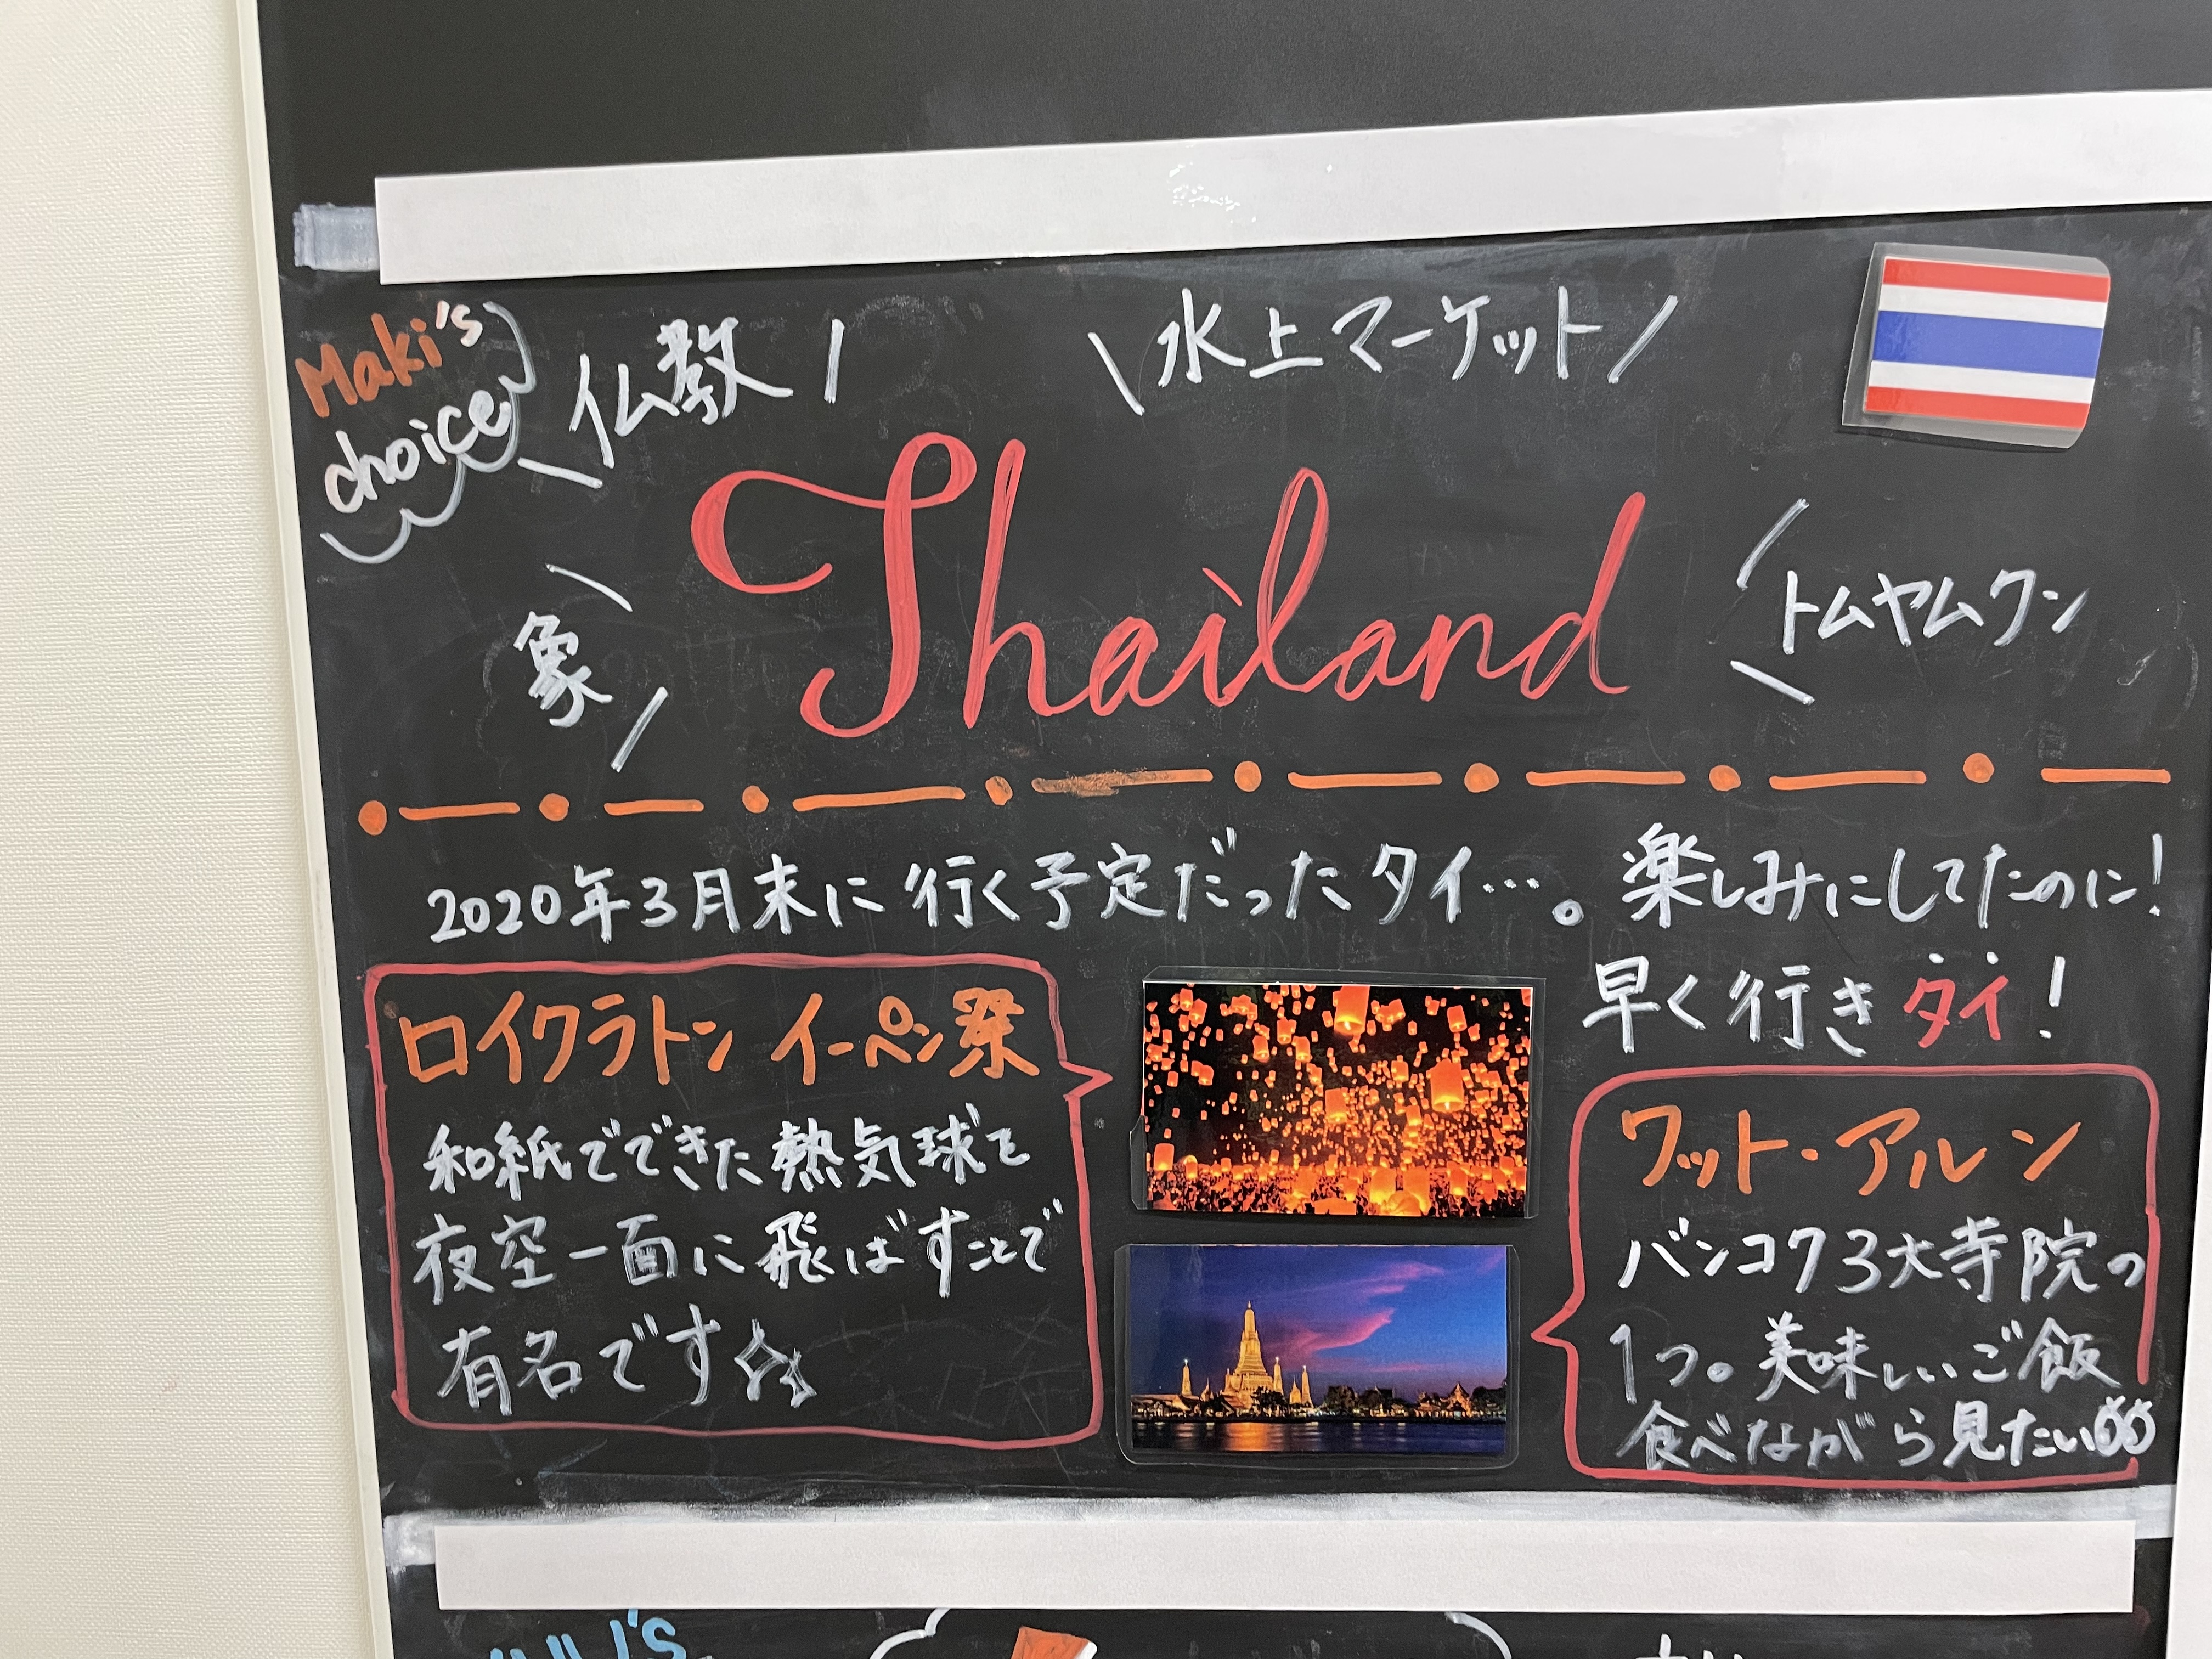 Maki's
choice
仏教
水上マーケット
Thailand
象
トムヤムクン
2020年3月末に行く予定だったタイ…。楽しみにしてたのに!
早く行きタイ!
ロイクラトン イーペン祭
和紙でできた熱気球を
夜空一面に飛ばすことで
有名です
ワット・アルン
バンコク3大寺院の
1つ。美味しいご飯
食べながら見たい